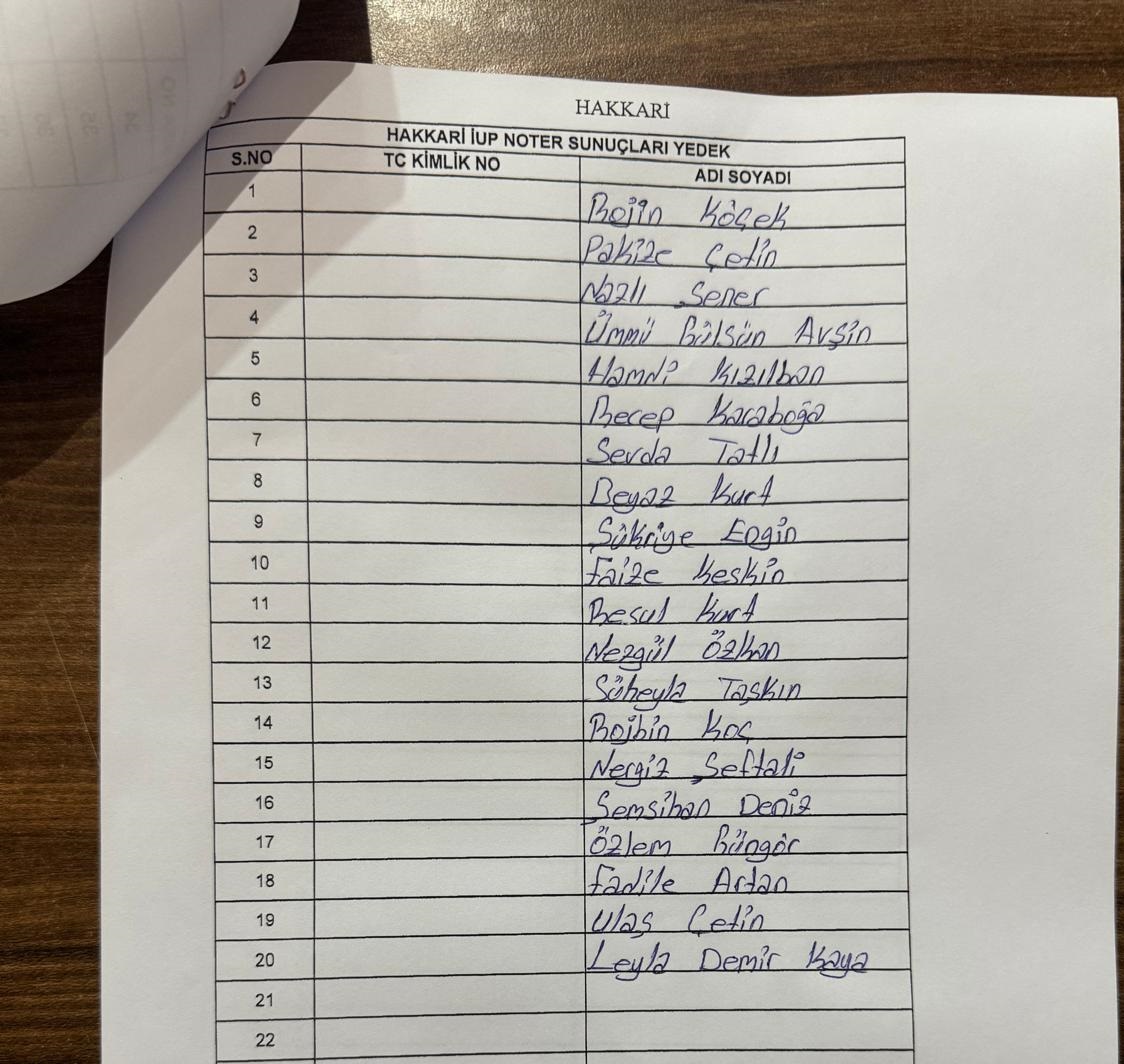 HAKKARİ
HAKKARİ İUP NOTER SUNUÇLARI YEDEK
S.NO TC KİMLİK NO ADI SOYADI
1 Rojin Köçek
2 Pakize Çetin
3 Nazlı Şener
4 Ümmü Gülsün Avşin
5 Hamdi Kızılban
6 Recep Karaboğa
7 Sevda Tatlı
8 Beyaz Kurt
9 Şükriye Engin
10 Faize Keskin
11 Resul Kurt
12 Nezgül Özkan
13 Süheyla Taşkın
14 Rojbin Koç
15 Nergiz Şeftali
16 Şemsihan Deniz
17 Özlem Güngör
18 Fadile Artan
19 Ulaş Çetin
20 Leyla Demir Kaya
21
22